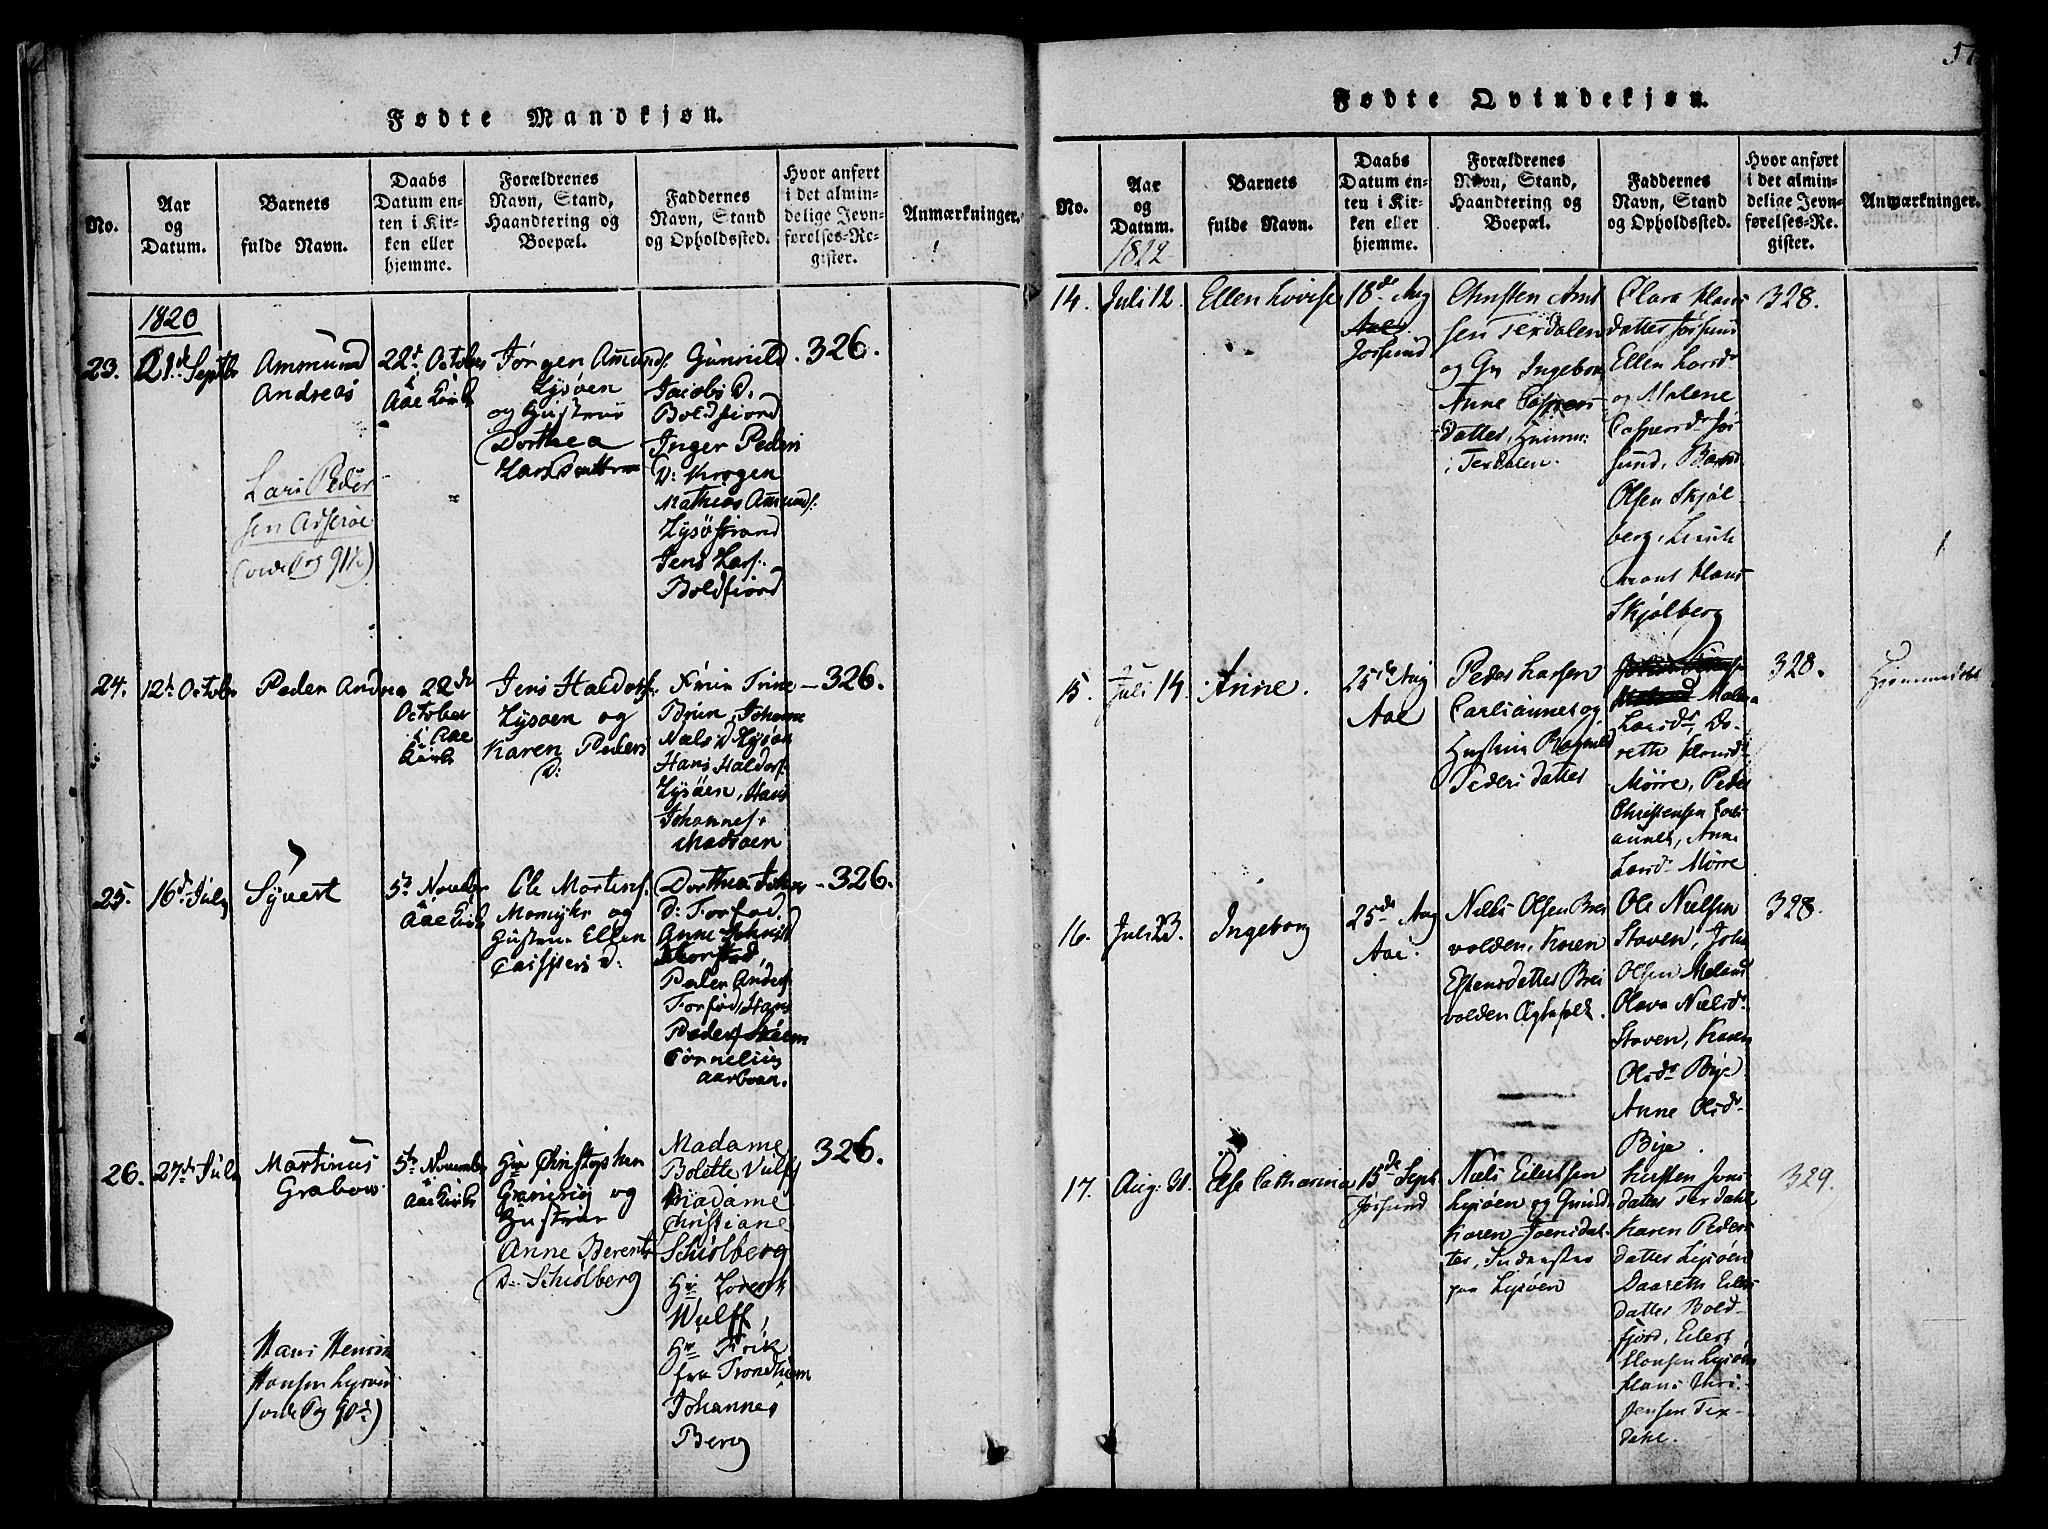 Fødte Mandkjøn.
No.
Aar
og
Datum.
Barnets
fulde Navn.
Daabs
Datum en-
ten i Kir-
ken eller
hjemme.
Forældrenes
Navn, Stand,
Haandtering og
Boepæl.
Faddernes
Navn, Stand
og Opholdssted.
Hvor anført
i det almin-
delige Jevn-
førelses-Re-
gister.
Anmærkninger.
1820
23.
21de Septbr
Ammund
Andreas
22d October
i
Aae Kirke
Jørgen Amunds.
Lysøen
og Hustrue
Dorthea
Larsdatter
Gunnild
Jacobs D.
Boldfiord
Inger Peders
D: Krogen
Mathias Amunds.
Lysøstrand
Jens Lars.
Boldfiord
326.
Lars Peder
sen
24.
12te October
Peder Andrea
22de
October
i Aae
Kirke
Jens Haldors.
Lysøen og
Karen Peders
D:
Trine
Brun, Johanne
Niels D. Lysøen
Hans Haldors.
Lysøen, Hans
Johannes.
Madsøen
326.
25.
16d July
Syvert
5te Novembr
Aae Kirke
Ole Mortens.
Momyhr og
Hustru Ellen
Caspers D:
Dorthea Johns
D: Forfod.
Anne
Peder Anders.
Forfød, Hans
Peders.
Cornelius
Aarboan.
326.
26.
27de July
Martinus
Grabow
5te Novembr
Aae Kirke
Hr Christopher
og
Hustrue
Anne Berents
D: Schiølberg
Madame
Bolette Vulff
Madame
Christiane
Schiølberg
Hr Lorentz
Wulff,
Hr Frik
fra Trondhiem
Johannes
Berg
326.
Hans Henrik
Hansen Lysøen
Fødte Qvindekjøn.
57
No.
Aar
og
Datum.
1822
Barnets
fulde Navn.
Daabs
Datum en-
ten i Kir-
ken eller
hjemme.
Forældrenes
Navn, Stand,
Haandtering og
Boepæl.
Faddernes
Navn, Stand
og Opholdssted.
Hvor anført
i det almin-
delige Jevn-
førelses-Re-
gister.
Anmærkninger.
14.
Juli 12.
Ellen Lovise
18de Aug
Aae.
Jøssund
Christen Arnt
sen Terdalen
og Ingeborg
Anne Caspers
datter,
i Terdalen.
Clara Hans
datter Jøssund
Ellen Larsdr
og Malene
Caspersdr Jøs
sund,
Olsen Skjøl-
berg,
Hans
Skjølberg
328.
15.
Juli 14.
Anne.
25de Aug
Aae
Peder Larsen
Carlsaunet og
Hustrue Ragnild
Peders datter
Larsdr, Do-
reth Hansdr
Mørre, Peder
Christensen Carls
aunet, Anne
Larsdr Mørre
328.
16.
Juli 23.
Ingeborg
25de Aug
Aae.
Niels Olsen Brei
volden, Karen
Estensdatter Brei
volden Ægtefolk.
Ole Nielsen
Staven, John
Olsen Meland
Olava Nielsdr
Staven, Karen
Olsdr Bye
Anne Olsdr
Bye.
328.
17.
Aug. 31.
Else Catharina
15de Sept.
Jøssund
Niels Eilertsen
Lysøen og
Karen Joensdat-
ter, Inderster
paa Lysøen
Kirsten Jons
datter Terdahl
Karen Peders
datter Lysøen
Daareth Eilers
datter Bold-
fjord, Eilert
Hansen Lysøen
Hans Chri-
stensen Ter-
dahl.
329.